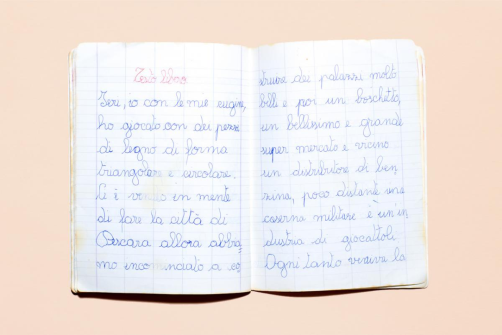 Testo libero
Ieri, io con le mie cugine,
ho giocato con dei pezzi
di legno di forma
triangolare e circolare.
Ci è venuto in mente
di fare la città di
Pescara allora abbia
mo incominciato a co
struire dei palazzi molto
belli e poi un boschetto,
un bellissimo e grande
super mercato e vicino
un distributore di ben
zina, poco distante una
caserma militare e un'in
dustria di giocattoli.
Ogni tanto veniva la